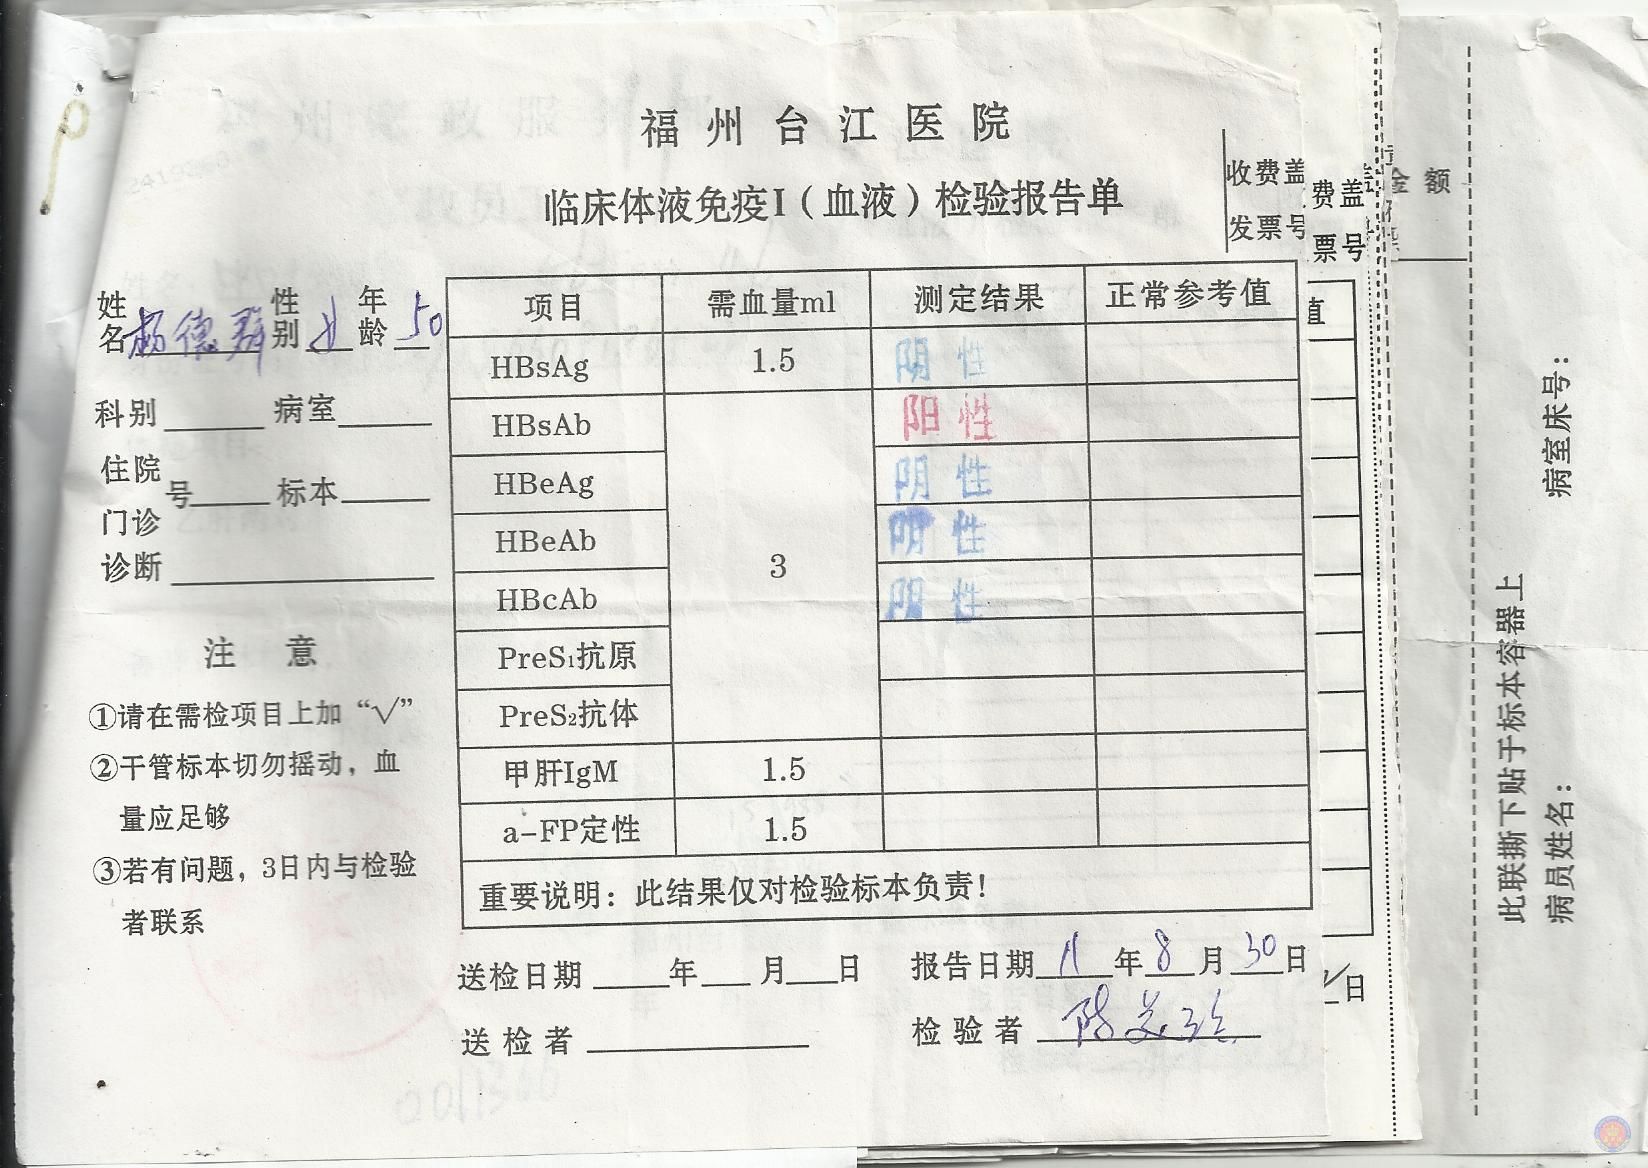 福州台江医院
临床体液免疫I（血液）检验报告单
收费盖
发票号
费盖
票号
金额
姓名 杨德群 性别 女 年龄 50
科别 病室
住院
号 标本
门诊
诊断
注 意
①请在需检项目上加“√”
②干管标本切勿摇动，血
量应足够
③若有问题，3日内与检验
者联系
项目 需血量ml 测定结果 正常参考值
HBsAg 1.5 阴性
HBsAb 阳性
HBeAg 阴性
HBeAb 阴性
HBcAb 3 阴性
PreS₁抗原
PreS₂抗体
甲肝IgM 1.5
a-FP定性 1.5
重要说明：此结果仅对检验标本负责！
送检日期 年 月 日 报告日期 11 年 8 月 30 日
送检者 检验者
值
日
0011366
此联撕下贴于标本容器上
病员姓名： 病室床号：